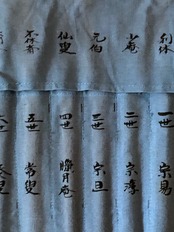 利休
少庵
元伯
仙叟
不休斎
一世 宗易
二世 宗淳
三世 宗旦
四世 臘月庵
五世 常叟